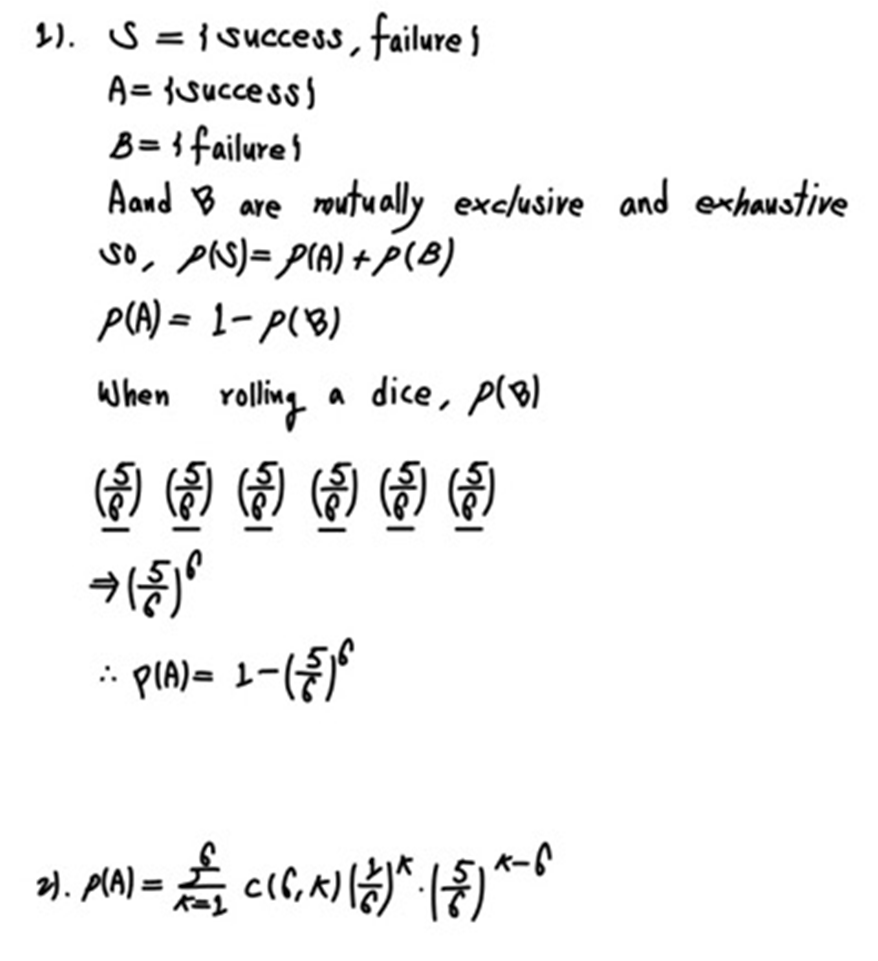 1). S = {success, failure}
A= {success}
B= {failure}
A and B are mutually exclusive and exhaustive
so, P(S)= P(A) + P(B)
P(A) = 1- P(B)
When rolling a dice, P(B)
(5/6) (5/6) (5/6) (5/6) (5/6) (5/6)
⇒ (5/6)^6
∴ P(A)= 1-(5/6)^6
2). P(A) = ∑_{K=1}^{6} C(6,K) (1/6)^K · (5/6)^{K-6}